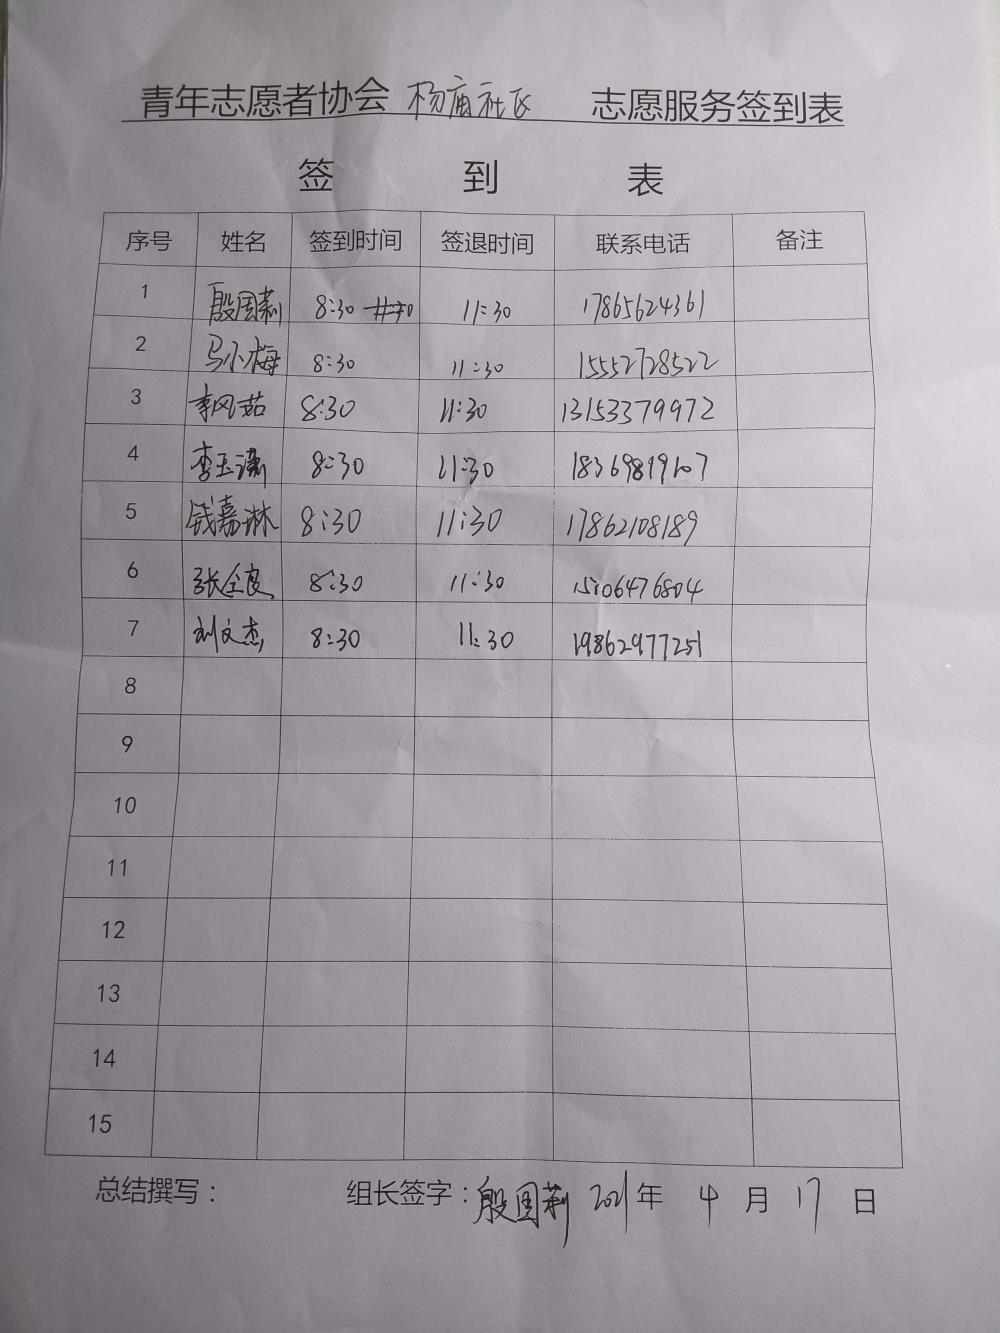 青年志愿者协会 杨庙社区 志愿服务签到表
签 到 表
序号 姓名 签到时间 签退时间 联系电话 备注
1 殷国莉 8:30 11:30 17865624361
2 马小梅 8:30 11:30 15552728522
3 李风茹 8:30 11:30 13153379972
4 李玉潇 8:30 11:30 18369819107
5 钱嘉淋 8:30 11:30 17862108189
6 张全良 8:30 11:30 15106476804
7 刘文杰 8:30 11:30 19862977251
8
9
10
11
12
13
14
15
总结撰写： 组长签字：殷国莉 2021年 4 月 17 日